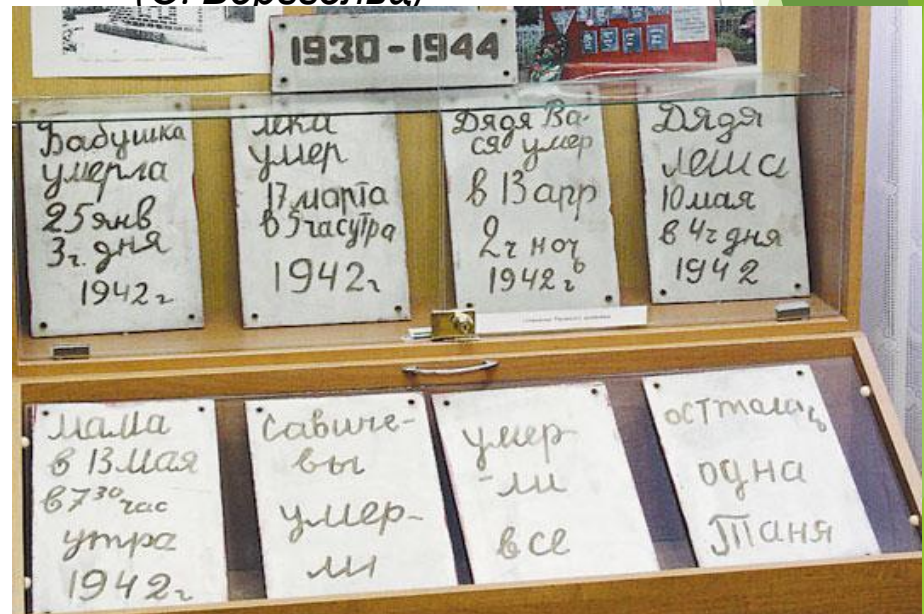 1930-1944
Бабушка
умерла
25 янв
3 г. дня
1942 г
Лека
умер
17 марта
в 5 часутра
1942 г
Дядя Ва-
ся умер
в 13 апр
2 ч ноч
1942 г
Дядя
Леша
10 мая
в 4 ч дня
1942
Мама
в 13 мая
в 7 30 час
утра
1942 г
Савиче-
вы
умер-
ли
умер-
-ли
все
осталась
одна
Таня